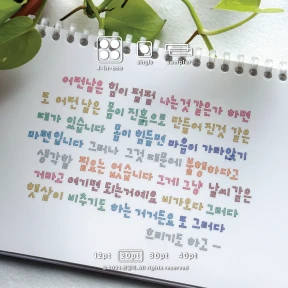 4-in-one single template
어떤날은 힘이 펄펄 나는것 같은가 하면
또 어떤날은 몸이 진흙으로 만들어 진것 같은
때가 있습니다 몸이 힘들면 마음이 가라앉기
마련입니다 그러나 그것 때문에 불행하다고
생각할 필요는 없습니다 그게 그냥 날씨같은
거라고 여기면 되는거예요 비가오다 그러다
햇살이 비추기도 하는 거거든요 또 그러다
흐리기도 하고 —
12pt 20pt 30pt 40pt
All rights reserved